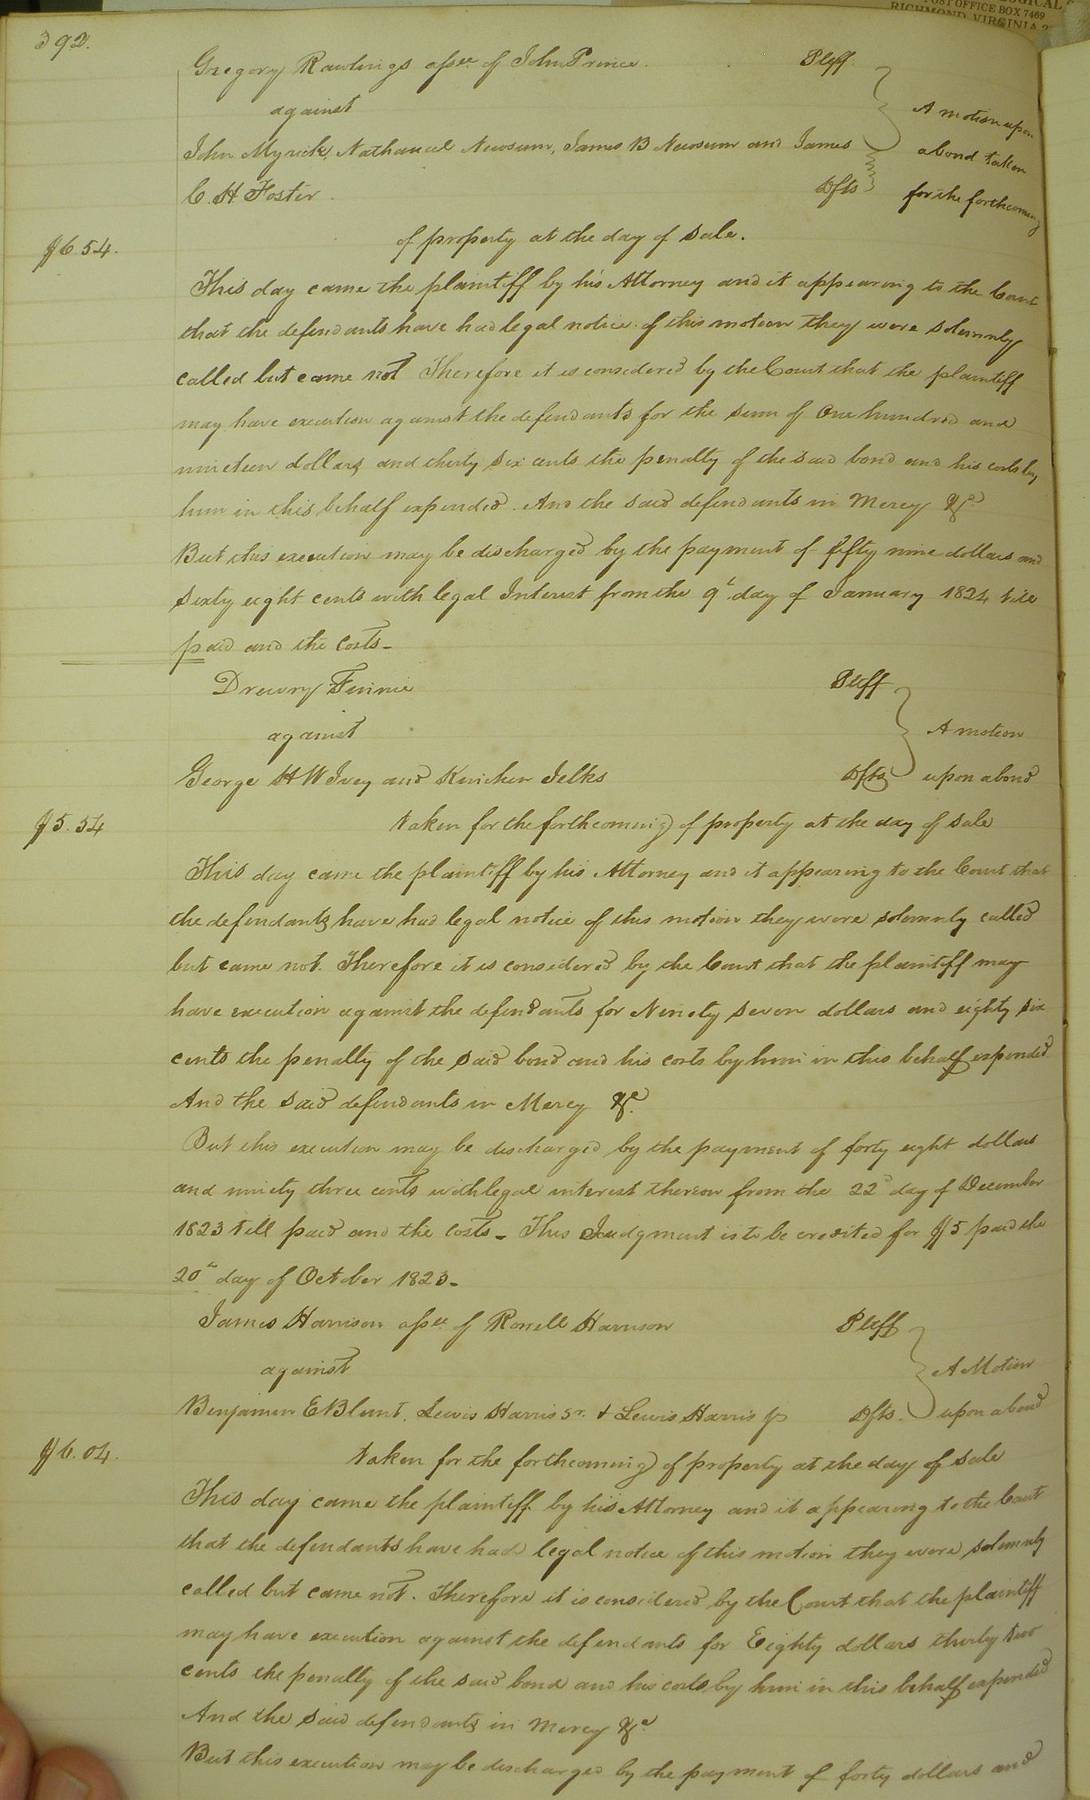 392.
POST OFFICE BOX 7469
RICHMOND, VIRGINIA
Gregory Rawlings assee of John Prince. Pltff
against
A motion upon
John Myrick, Nathaniel Newsum, James B Newsum and James
a bond taken
C H Foster. Dfts
for the forthcoming
of property at the day of Sale.
$6.54.
This day came the plaintiff by his Attorney and it appearing to the Court
that the defendants have had legal notice of this motion they were solemnly
called but came not Therefore it is considered by the Court that the plaintiff
may have execution against the defendants for the sum of One hundred and
nineteen dollars and thirty six cents the penalty of the said bond and his costs by
him in this behalf expended. And the said defendants in Mercy &c
But this execution may be discharged by the payment of fifty nine dollars and
Sixty eight cents with legal Interest from the 9th day of January 1824 till
paid and the Costs-
Drewry Fennie Pltff
against
A motion
George H W Ivey and Kinchen Jelks Dfts upon a bond
$5.54 taken for the forthcoming of property at the day of sale
This day came the plaintiff by his Attorney and it appearing to the Court that
the defendants have had legal notice of this motion they were solemnly called
but came not. Therefore it is considered by the Court that the plaintiff may
have execution against the defendants for Ninety seven dollars and eighty six
cents the penalty of the said bond and his costs by him in this behalf expended
And the said defendants in Mercy &c.
But this execution may be discharged by the payment of forty eight dollars
and ninety three cents with legal interest thereon from the 22d day of December
1823 till paid and the Costs- This Judgment is to be credited for $5 paid the
20th day of October 1823-
James Harrison assee of Harrison Pltff
against
A Motion
Benjamin E Blunt, Lewis Harris Sr. & Lewis Harris Jr Dfts. upon a bond
$6.04. taken for the forthcoming of property at the day of sale
This day came the plaintiff by his Attorney and it appearing to the Court
that the defendants have had legal notice of this motion they were solemnly
called but came not. Therefore it is considered by the Court that the plaintiff
may have execution against the defendants for Eighty dollars thirty two
cents the penalty of the said bond and his costs by him in this behalf expended
And the said defendants in Mercy &c
But this execution may be discharged by the payment of forty dollars and